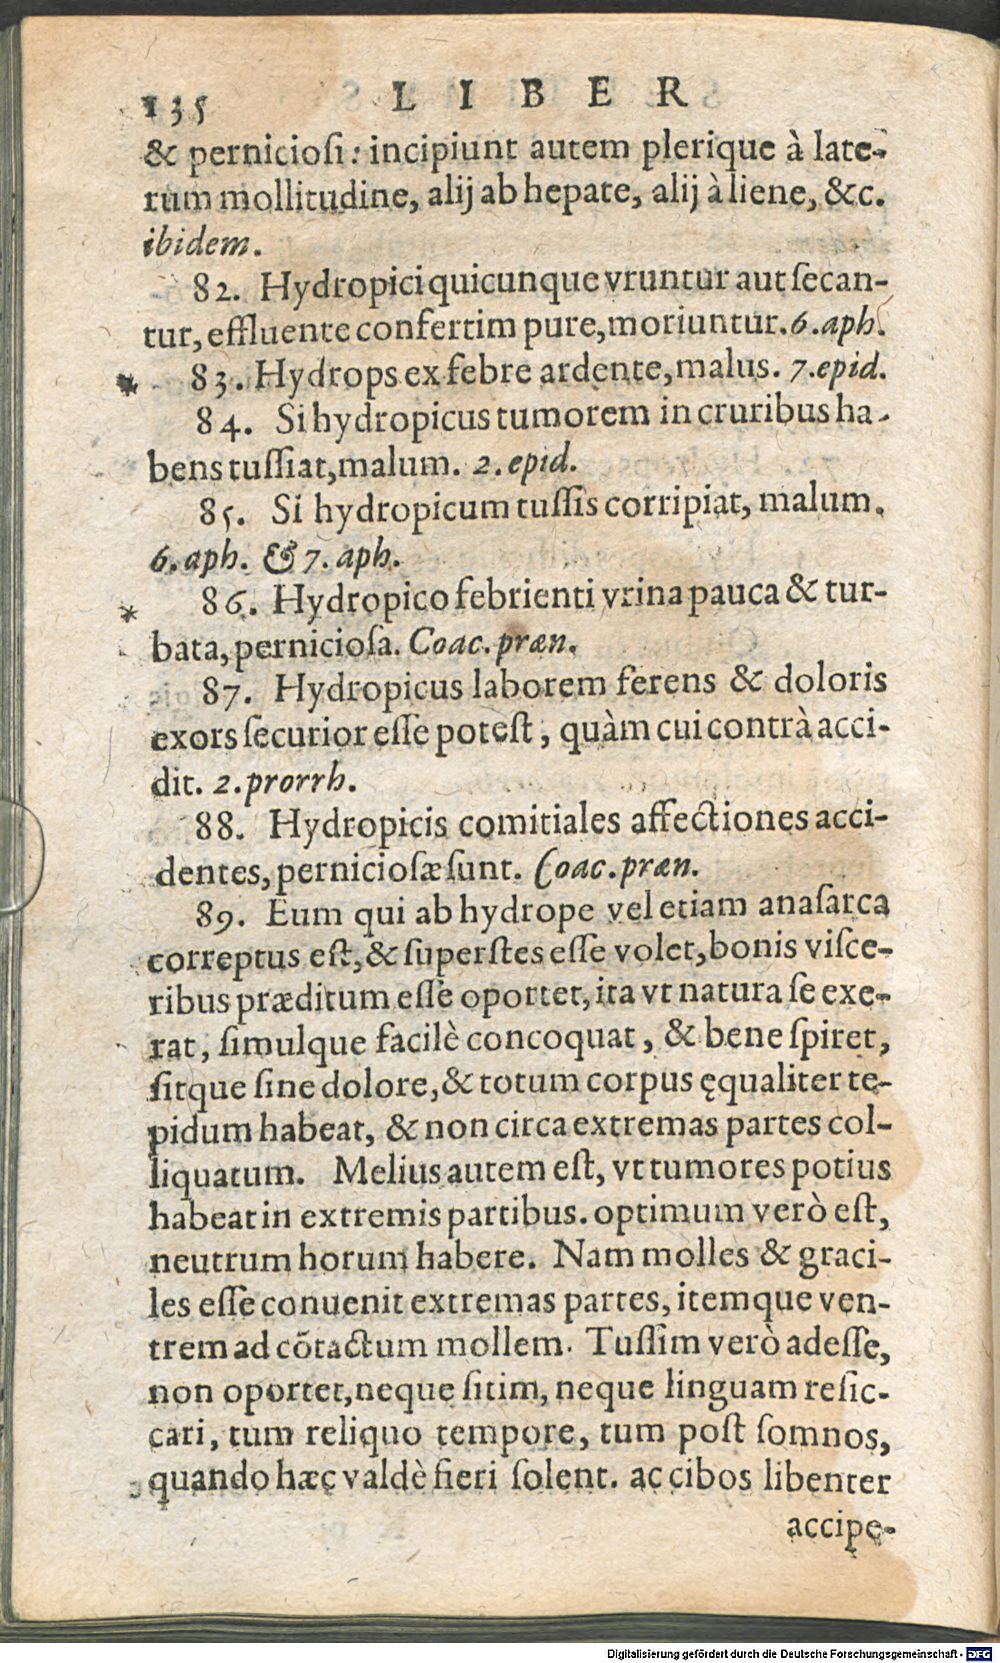 135 LIBER
& pernicioſi: incipiunt autem plerique à late-
rum mollitudine, alij ab hepate, alij à liene, &c.
ibidem.
82. Hydropici quicunque vruntur aut ſecan-
tur, effluente confertim pure, moriuntur. 6. aph.
* 83. Hydrops ex febre ardente, malus. 7. epid.
84. Si hydropicus tumorem in cruribus ha-
bens tuſſiat, malum. 2. epid.
85. Si hydropicum tuſſis corripiat, malum.
6. aph. & 7. aph.
* 86. Hydropico febrienti vrina pauca & tur-
bata, pernicioſa. Coac. præn.
87. Hydropicus laborem ferens & doloris
exors ſecurior eſſe poteſt, quàm cui contrà acci-
dit. 2. prorrh.
88. Hydropicis comitiales affectiones acci-
dentes, pernicioſæ ſunt. Coac. præn.
89. Eum qui ab hydrope vel etiam anaſarca
correptus eſt, & ſuperſtes eſſe volet, bonis viſce-
ribus præditum eſſe oportet, ita vt natura ſe exe-
rat, ſimulque facilè concoquat, & bene ſpiret,
ſitque ſine dolore, & totum corpus ęqualiter te-
pidum habeat, & non circa extremas partes col-
liquatum. Melius autem eſt, vt tumores potius
habeat in extremis partibus. optimum verò eſt,
neutrum horum habere. Nam molles & graci-
les eſſe conuenit extremas partes, itemque ven-
trem ad cõtactum mollem. Tuſſim verò adeſſe,
non oportet, neque ſitim, neque linguam reſic-
cari, tum reliquo tempore, tum poſt ſomnos,
quando hæc valdè fieri ſolent. ac cibos libenter
accipe-
Digitalisierung gefördert durch die Deutsche Forschungsgemeinschaft - DFG